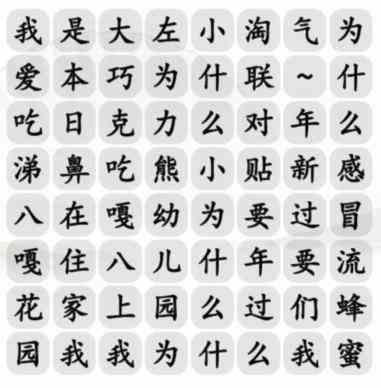 我是大左小淘气为
爱本巧为什联~什
吃日克力么对年么
涕鼻吃熊小贴新感
八在嘎幼为要过冒
嘎住八儿什年要流
花家上园么过们蜂
园我我为什么我蜜